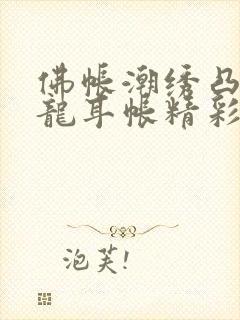 佛帐潮绣凸
龍耳帐精彩
泡芙!